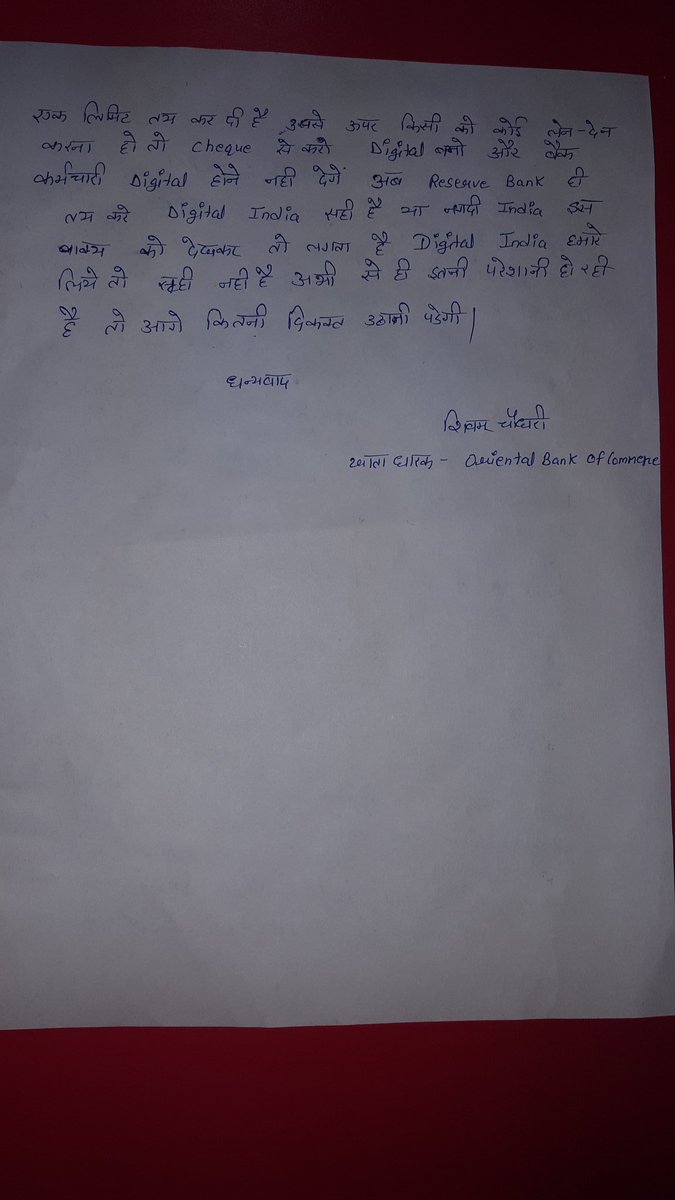 एक लिमिट तय कर दी है उससे ऊपर किसी को कोई लेन-देन
करना हो तो cheque से करो Digital बनो और बैंक
कर्मचारी Digital होने नही देगें अब Reserve Bank ही
तय करे Digital India सही है या नगदी India इस
वाक्य को देखकर तो लगता है Digital India हमारे
लिये तो सही नही है अभी से ही इतनी परेशानी हो रही
है तो आगे कितनी दिक्कत उठानी पडेगी|
धन्यवाद
शिवम चौधरी
खाता धारक - Oriental Bank Of Commerce